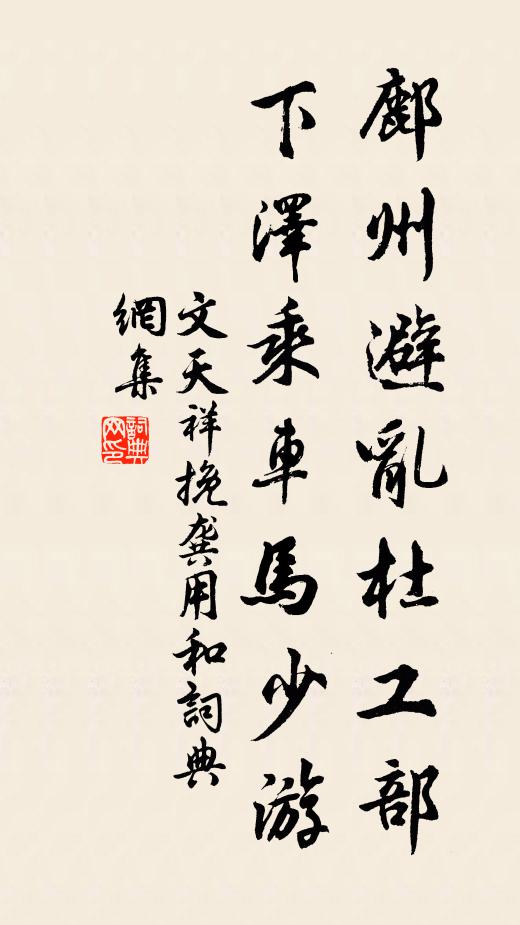 鄜州避亂杜工部
下澤乘車馬少游
文天祥挽龔用和詞典
網集
詞典網印